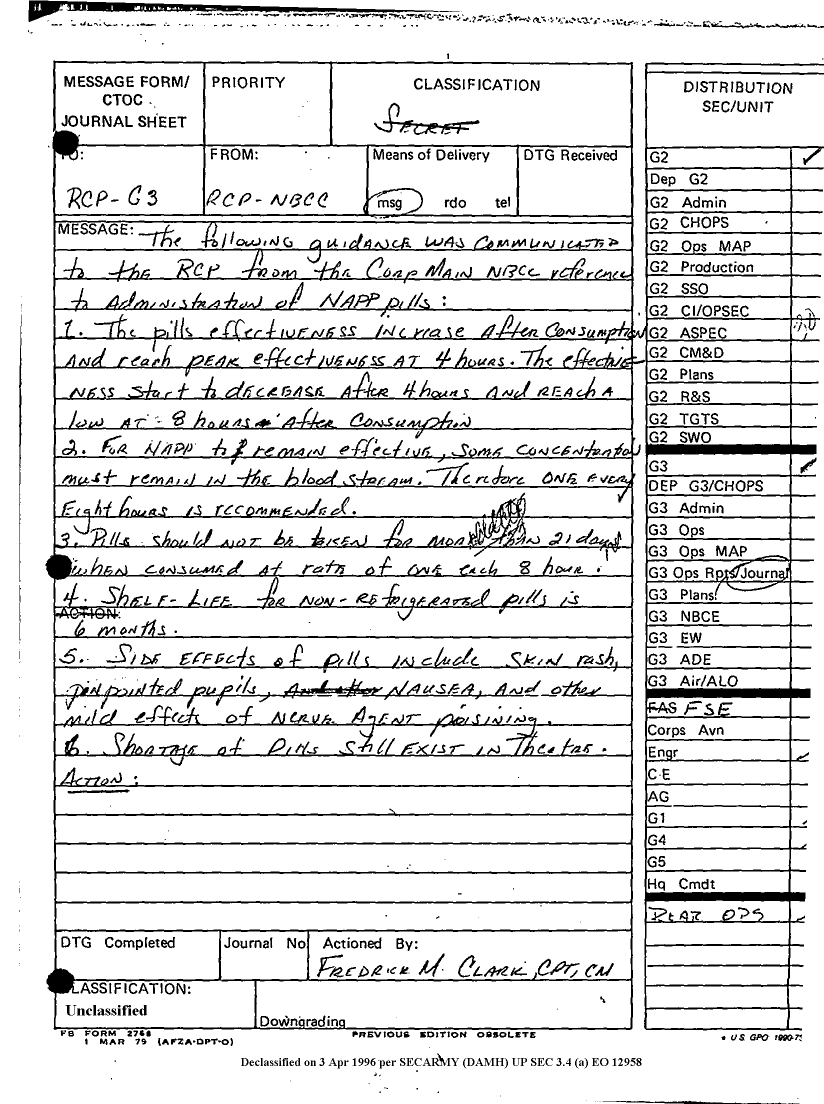 MESSAGE FORM/
CTOC
JOURNAL SHEET
PRIORITY
CLASSIFICATION
SECRET
TO:
RCP-G3
FROM:
RCP-NBCC
Means of Delivery
msg rdo tel
DTG Received
MESSAGE: The following guidance was communicated
to the RCP from the Corp Main NBCC reference
to Administration of NAPP pills:
1. The pills effectiveness increase after consumption
and reach peak effectiveness at 4 hours. The effective
ness start to decrease after 4 hours and reach a
low at 8 hours after consumption
2. For NAPP to remain effective, some concentration
must remain in the blood stream. Therefore one every
Eight hours is recommended.
3. Pills should not be taken for more than 21 days
when consumed at rate of one each 8 hour.
4. Shelf-life for non-refrigerated pills is
ACTION:
6 months.
5. Side effects of pills include skin rash,
pinpointed pupils, nausea, and other
mild effects of nerve agent poisining.
6. Shortage of pills still exist in Theatre.
Action:
DTG Completed
Journal No
Actioned By:
FREDRICK M. CLARK, CPT, CM
CLASSIFICATION:
Unclassified
Downgrading
FB FORM 2768
1 MAR 79 (AFZA-DPT-O)
PREVIOUS EDITION OBSOLETE
DISTRIBUTION
SEC/UNIT
G2
Dep G2
G2 Admin
G2 CHOPS
G2 Ops MAP
G2 Production
G2 SSO
G2 CI/OPSEC
G2 ASPEC
G2 CM&D
G2 Plans
G2 R&S
G2 TGTS
G2 SWO
G3
DEP G3/CHOPS
G3 Admin
G3 Ops
G3 Ops MAP
G3 Ops Rpts/Journal
G3 Plans
G3 NBCE
G3 EW
G3 ADE
G3 Air/ALO
FAS FSE
Corps Avn
Engr
C-E
AG
G1
G4
G5
Hq Cmdt
REAR OPS
U.S. GPO 1990-7
Declassified on 3 Apr 1996 per SECARMY (DAMH) UP SEC 3.4 (a) EO 12958